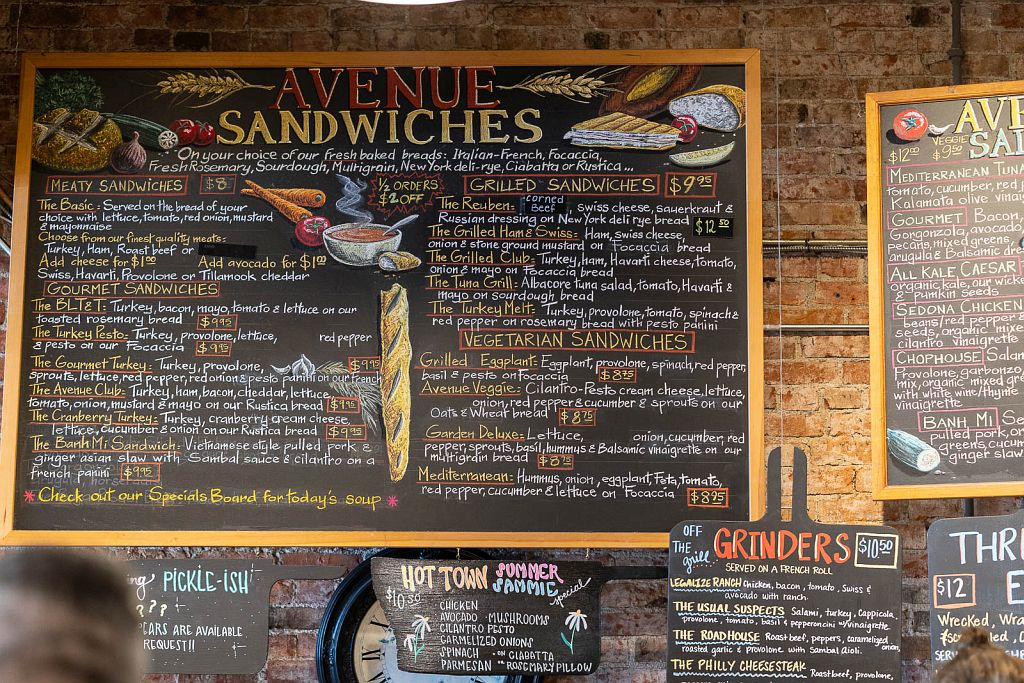 AVENUE
SANDWICHES
On your choice of our fresh baked breads: Italian-French, Focaccia,
Fresh Rosemary, Sourdough, Multigrain, New York deli-rye, Ciabatta or Rustica...
MEATY SANDWICHES $8
The Basic: Served on the bread of your
choice with lettuce, tomato, red onion, mustard
& mayonnaise
Choose from our finest quality meats:
Turkey, Ham, Roast beef or
Add cheese for $1.00 Add avocado for $1.00
Swiss, Havarti, Provolone or Tillamook cheddar
GOURMET SANDWICHES
The BLT&T: Turkey, bacon, mayo, tomato & lettuce on our
toasted rosemary bread $9.95
The Turkey Pesto: Turkey, provolone, lettuce, red pepper
& pesto on our Focaccia $9.95
The Gourmet Turkey: Turkey, provolone, $9.95
sprouts, lettuce, red pepper, red onion & pesto panini on our french
The Avenue Club: Turkey, ham, bacon, cheddar, lettuce
tomato, onion, mustard & mayo on our Rustica bread $9.95
The Cranberry Turkey: Turkey, cranberry cream cheese,
lettuce, cucumber & onion on our Rustica bread $9.95
The Banh Mi Sandwich: Vietnamese style pulled pork &
ginger asian slaw with Sambal sauce & cilantro on a
french panini $9.95
* Check out our Specials Board for today's soup *
1/2 ORDERS
$2 OFF
GRILLED SANDWICHES $9.95
The Reuben: Corned Beef, swiss cheese, sauerkraut &
Russian dressing on New York deli rye bread $12.50
The Grilled Ham & Swiss: Ham, swiss cheese,
onion & stone ground mustard on Focaccia bread
The Grilled Club: Turkey, ham, Havarti cheese, tomato,
onion & mayo on Focaccia bread
The Tuna Grill: Albacore tuna salad, tomato, Havarti &
mayo on sourdough bread
The Turkey Melt: Turkey, provolone, tomato, spinach &
red pepper on rosemary bread with pesto panini
VEGETARIAN SANDWICHES
Grilled Eggplant: Eggplant, provolone, spinach, red pepper,
basil & pesto on Focaccia $8.75
Avenue Veggie: Cilantro-Pesto cream cheese, lettuce,
onion, red pepper & cucumber & sprouts on our
Oats & Wheat bread $8.75
Garden Deluxe: Lettuce, onion, cucumber, red
pepper, sprouts, basil, hummus & Balsamic vinaigrette on our
multigrain bread $8.75
Mediterranean: Hummus, onion, eggplant, Feta, tomato,
red pepper, cucumber & lettuce on Focaccia $8.95
AV
SA
VEGGIE
$12.00 $9.50
MEDITERRANEAN TUNA
tomato, cucumber, red
Kalamata olive
GOURMET Bacon,
Gorgonzola, avocado,
pecans, mixed greens,
arugula & Balsamic
ALL KALE CAESAR
organic kale, our
& pumpkin seeds
SEDONA CHICKEN
beans/red pepper
seeds, organic
cilantro vinaigrette
CHOPHOUSE
Provolone, garbonzo
mix, organic mixed
with white wine/thyme
vinaigrette
BANH MI
pulled pork,
greens, cucumber
ginger slaw
PICKLE-ISH
??
ARE AVAILABLE
REQUEST!!
HOT TOWN SUMMER
SAMMIE special
$10.50
CHICKEN
AVOCADO · MUSHROOMS
CILANTRO PESTO
CARMELIZED ONIONS
SPINACH · ON CIABATTA
PARMESAN OR ROSEMARY PILLOW
OFF THE grill GRINDERS $10.50
SERVED ON A FRENCH ROLL
LEGALIZE RANCH Chicken, bacon, tomato, Swiss &
avocado with ranch.
THE USUAL SUSPECTS Salami, turkey, Cappicola,
provolone, tomato, basil & pepperoncini w/vinaigrette
THE ROADHOUSE Roast beef, peppers, caramelized onion,
roasted garlic & provolone with Sambal Aioli.
THE PHILLY CHEESESTEAK Roast beef, provolone,
THR
$12
Wrecked,